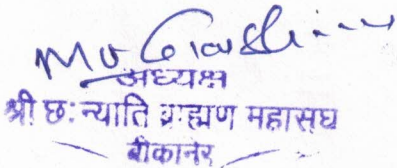 अध्यक्ष
श्री छः न्याति ब्राह्मण महासघ
बीकानेर